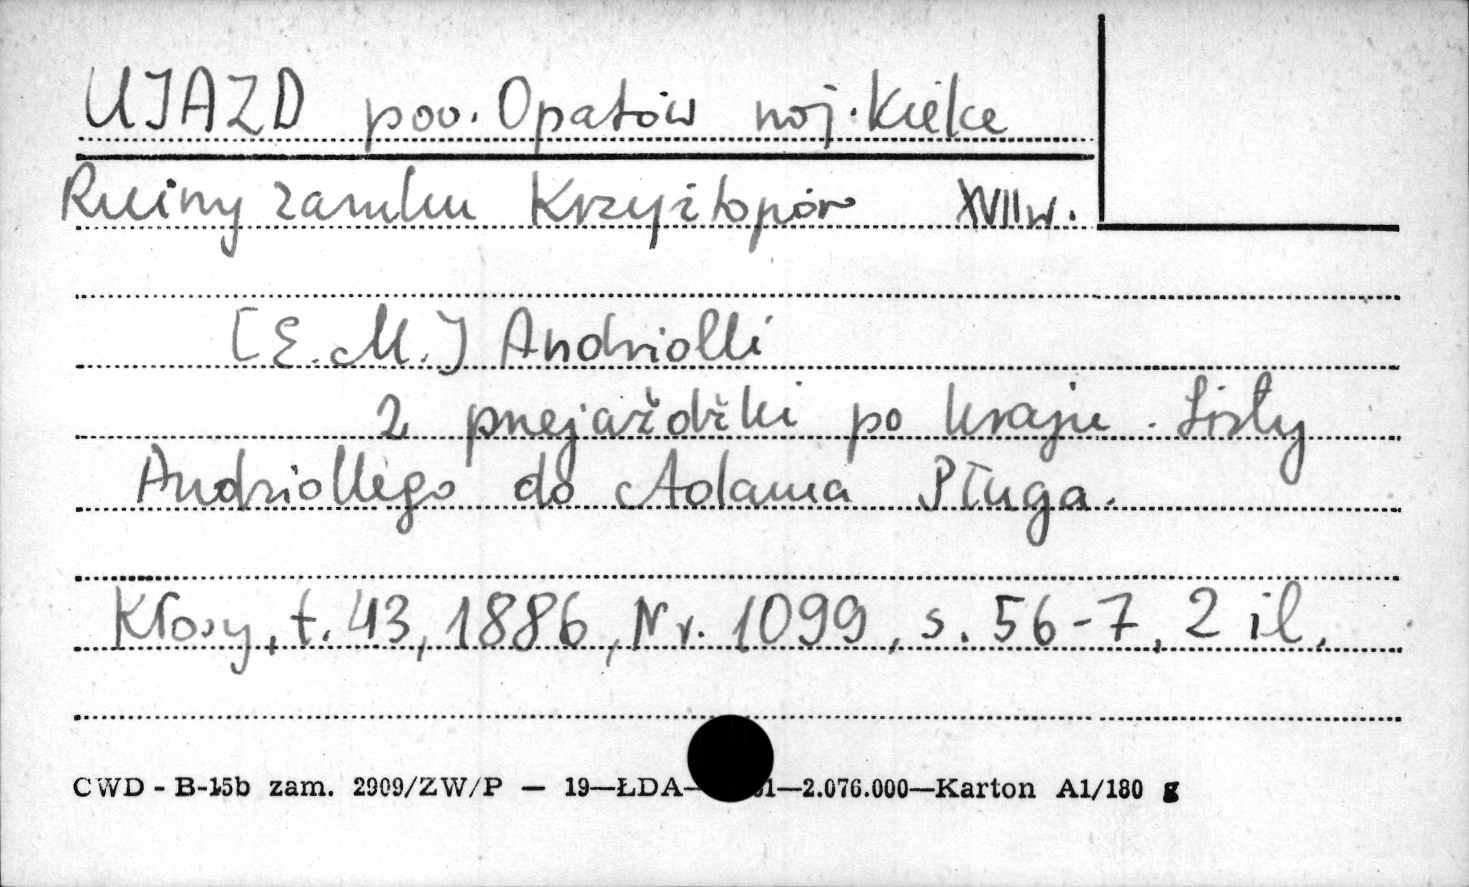 UJAZD pow. Opatów woj. Kielce
Ruiny zamku Krzyżtopór XVII w.
[E. M.] Andriolli
Z przejażdżki po kraju. Listy
Andriollego do Adama Pługa.
Kłosy, t. 43, 1886, Nr. 1099, s. 56-7, 2 il.
CWD - B-15b zam. 2909/ZW/P — 19—ŁDA— 61—2.076.000—Karton A1/180 g